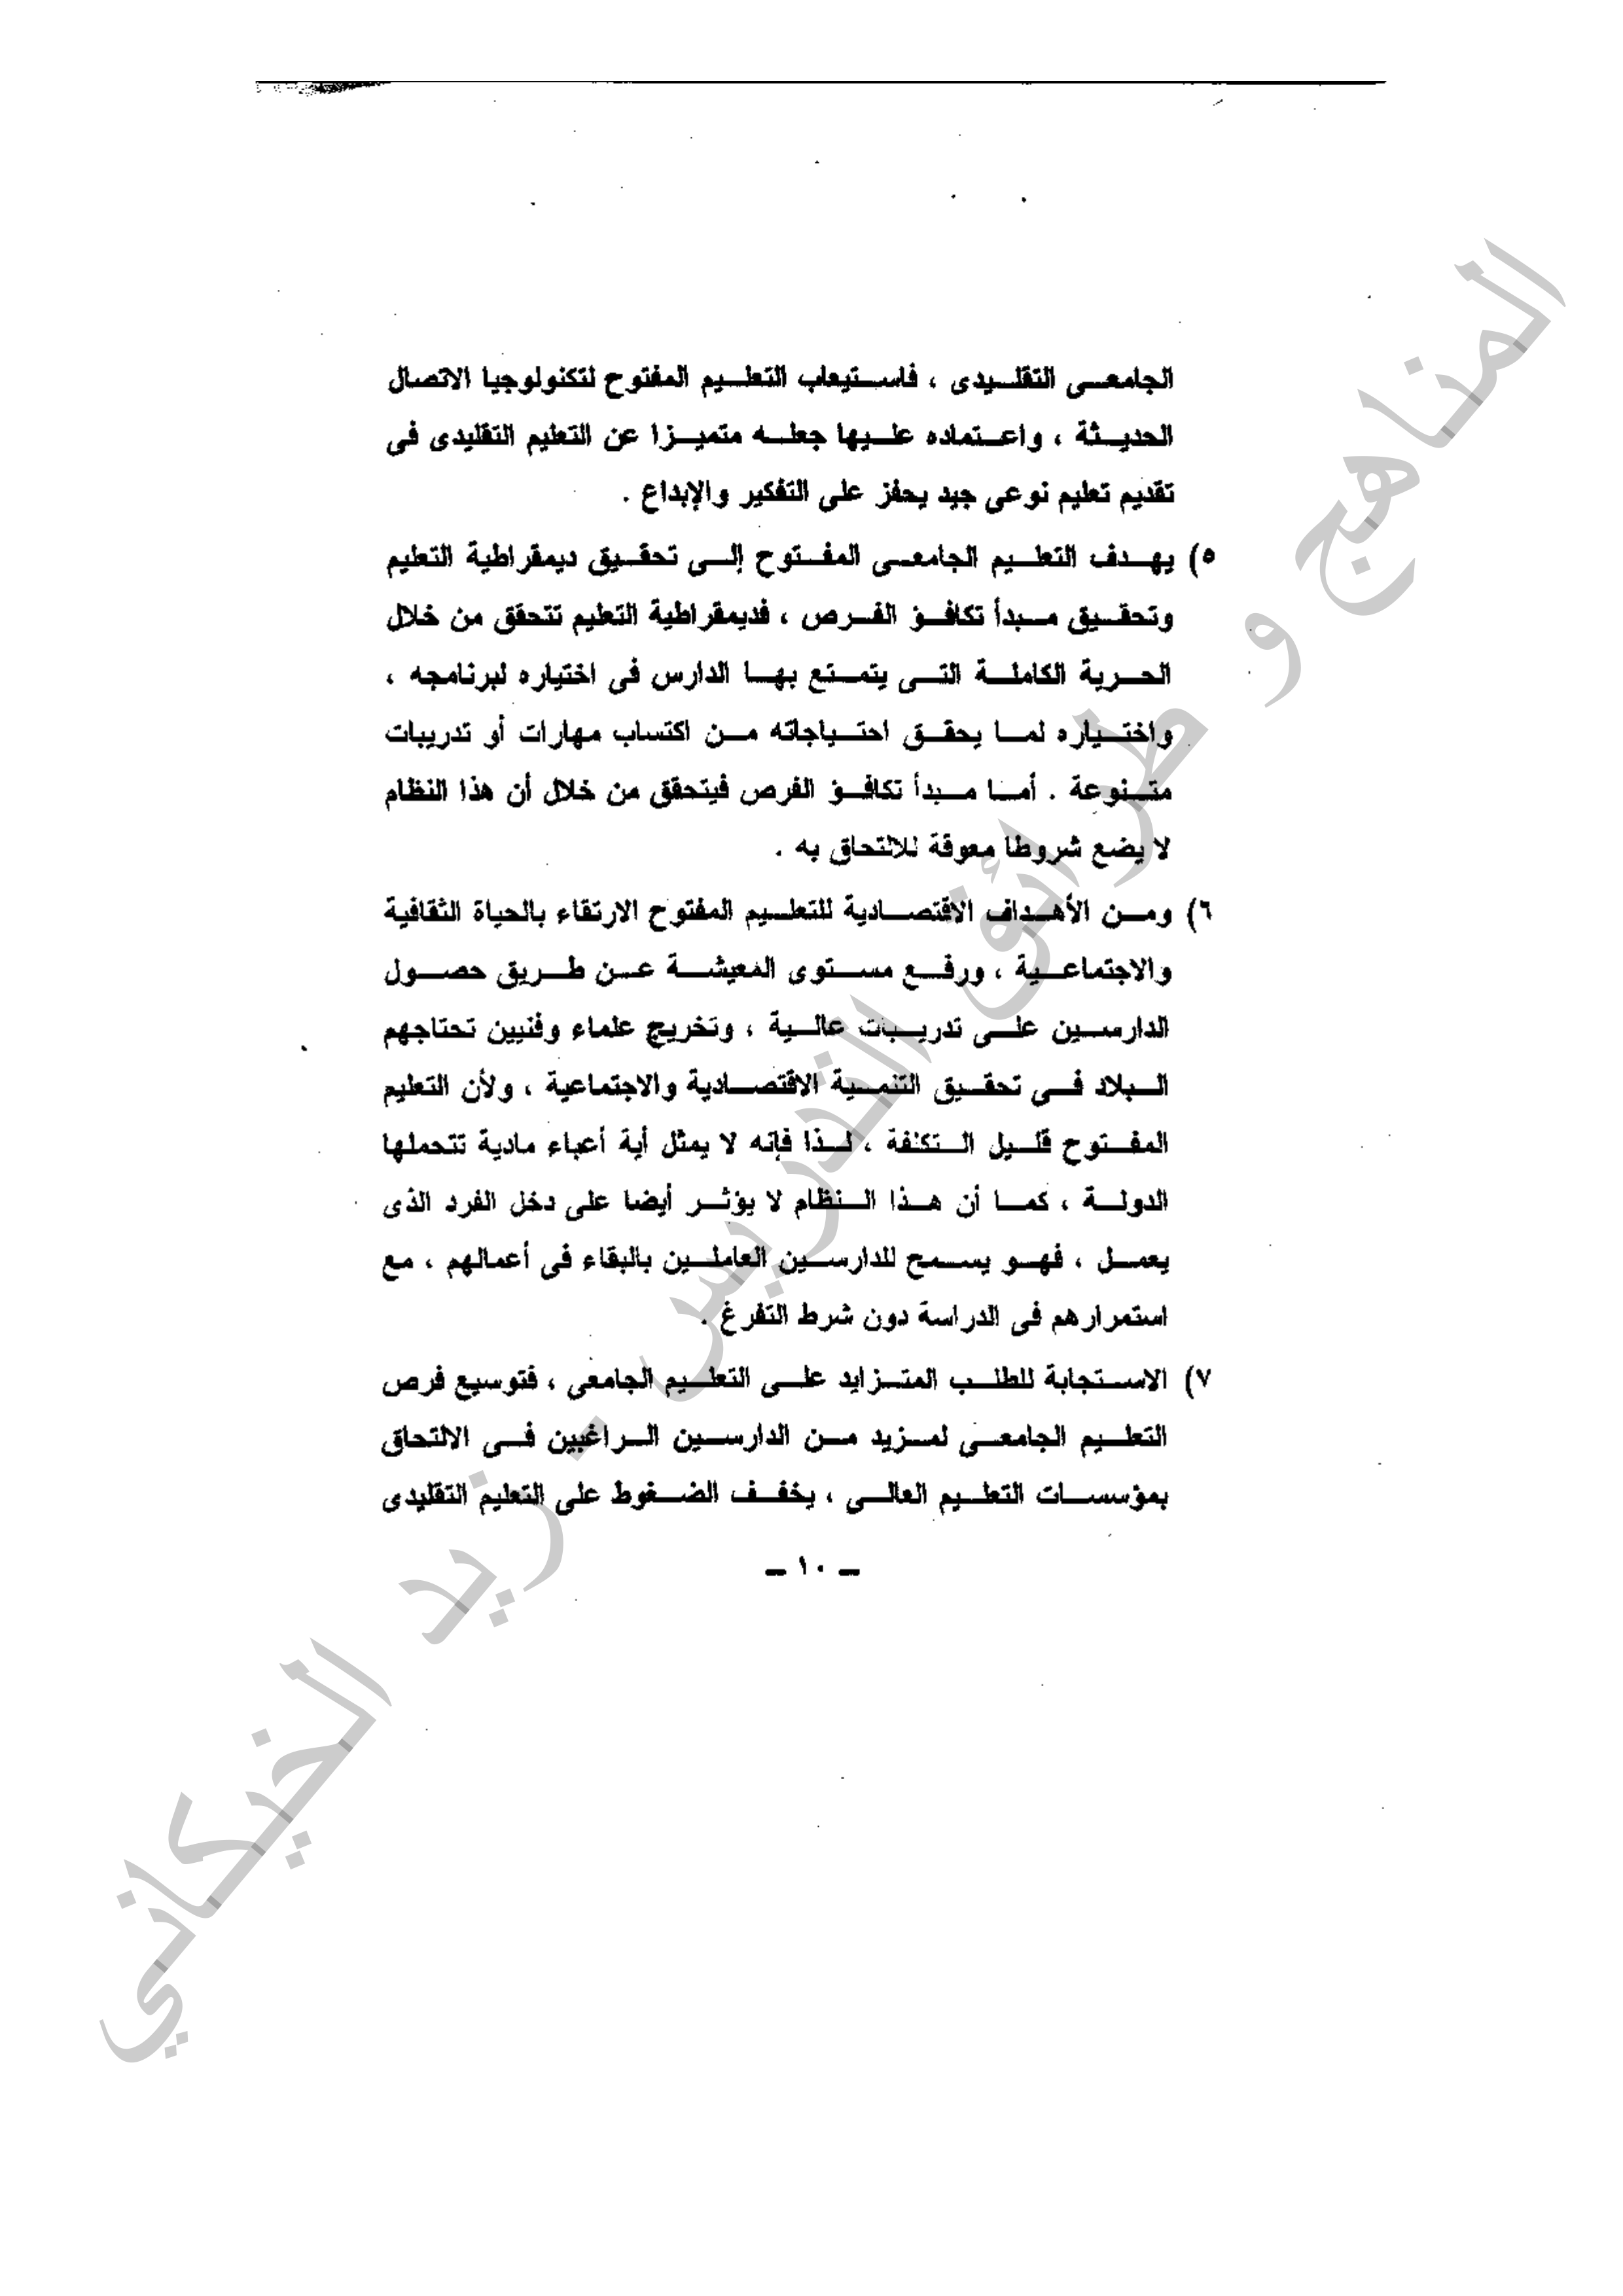 الجامعى التقليدى ، فاستيعاب التعليم المفتوح لتكنولوجيا الاتصال
الحديثة ، واعتماده عليها جعله متميزا عن التعليم التقليدى فى
تقديم تعليم نوعى جيد يحفز على التفكير والإبداع .
٥) يهدف التعليم الجامعى المفتوح إلى تحقيق ديمقراطية التعليم
وتحقيق مبدأ تكافؤ الفرص ، فديمقراطية التعليم تتحقق من خلال
الحرية الكاملة التى يتمتع بها الدارس فى اختياره لبرنامجه ،
واختياره لما يحقق احتياجاته من اكتساب مهارات أو تدريبات
متنوعة . أما مبدأ تكافؤ الفرص فيتحقق من خلال أن هذا النظام
لا يضع شروطا معوقة للالتحاق به .
٦) ومن الأهداف الاقتصادية للتعليم المفتوح الارتقاء بالحياة الثقافية
والاجتماعية ، ورفع مستوى المعيشة عن طريق حصول
الدارسين على تدريبات عالية ، وتخريج علماء وفنيين تحتاجهم
البلاد فى تحقيق التنمية الاقتصادية والاجتماعية ، ولأن التعليم
المفتوح قليل التكلفة ، لذا فإنه لا يمثل أية أعباء مادية تتحملها
الدولة ، كما أن هذا النظام لا يؤثر أيضا على دخل الفرد الذى
يعمل ، فهو يسمح للدارسين العاملين بالبقاء فى أعمالهم ، مع
استمرارهم فى الدراسة دون شرط التفرغ .
٧) الاستجابة للطلب المتزايد على التعليم الجامعى ، فتوسيع فرص
التعليم الجامعى لمزيد من الدارسين الراغبين فى الالتحاق
بمؤسسات التعليم العالى ، يخفف الضغوط على التعليم التقليدى
ــ ١٠ ــ
المناهج و طرائق التدريس - زيد الخيكاني